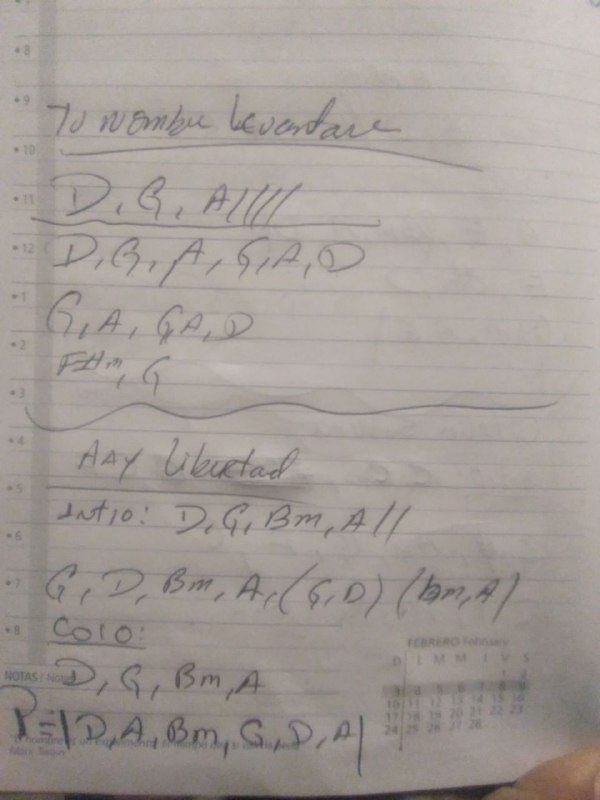 •8
•9
Tu nombre levantare
•10
•11 D, G, A/////
•12 D, G, A, G, A, D
•1
G, A, G, A, D
•2
F#m, G
•3
•4
HAY libertad
•5
Intro: D, G, Bm, A//
•6
•7 G, D, Bm, A, (G, D) (bm, A)
•8 Coro:
FEBRERO February
D L M M J V S
1 2
3 4 5 6 7 8 9
10 11 12 13 14 15 16
17 18 19 20 21 22 23
24 25 26 27 28
NOTAS /
D, G, Bm, A
P=|D, A, Bm, G, D, A|
Mark Twain